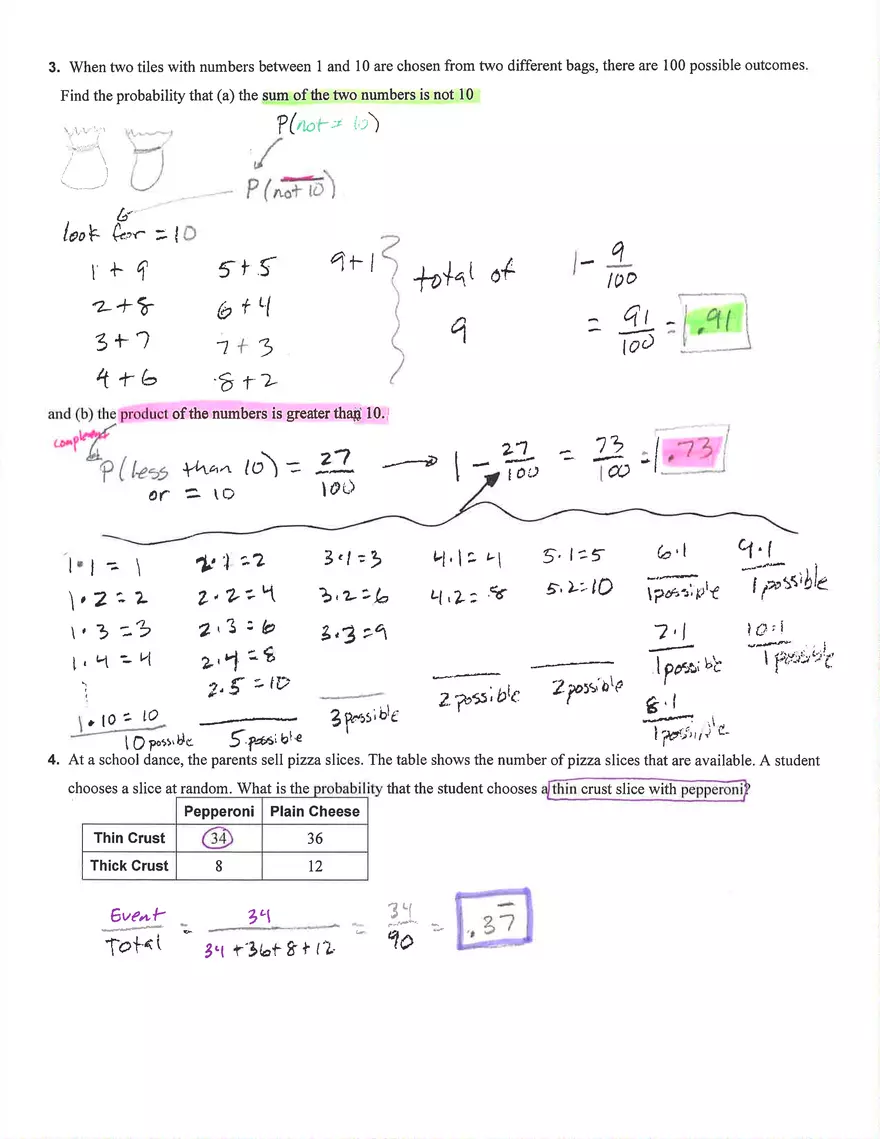 3. When two tiles with numbers between 1 and 10 are chosen from two different bags, there are 100 possible outcomes.
Find the probability that (a) the sum of the two numbers is not 10
P(not = 10)
P(not 10)
look for = 10
1 + 9 5 + 5 9 + 1 total of 1 - 9/100
2 + 8 6 + 4
3 + 7 7 + 3 9 = 91/100 = .91
4 + 6 8 + 2
and (b) the product of the numbers is greater than 10.
complement
P(less than 10) = 27/100 → 1 - 27/100 = 73/100 = .73
or = 10
1·1 = 1 2·1 = 2 3·1 = 3 4·1 = 4 5·1 = 5 6·1 9·1
1·2 = 2 2·2 = 4 3·2 = 6 4·2 = 8 5·2 = 10 1 possible 1 possible
1·3 = 3 2·3 = 6 3·3 = 9 7·1 10·1
1·4 = 4 2·4 = 8 1 possible 1 possible
2·5 = 10 2 possible 2 possible 8·1
1·10 = 10 3 possible 1 possible
10 possible 5 possible
4. At a school dance, the parents sell pizza slices. The table shows the number of pizza slices that are available. A student
chooses a slice at random. What is the probability that the student chooses a thin crust slice with pepperoni?
Pepperoni Plain Cheese
Thin Crust 34 36
Thick Crust 8 12
Event/Total = 34/34 + 36 + 8 + 12 = 34/90 = .37̅